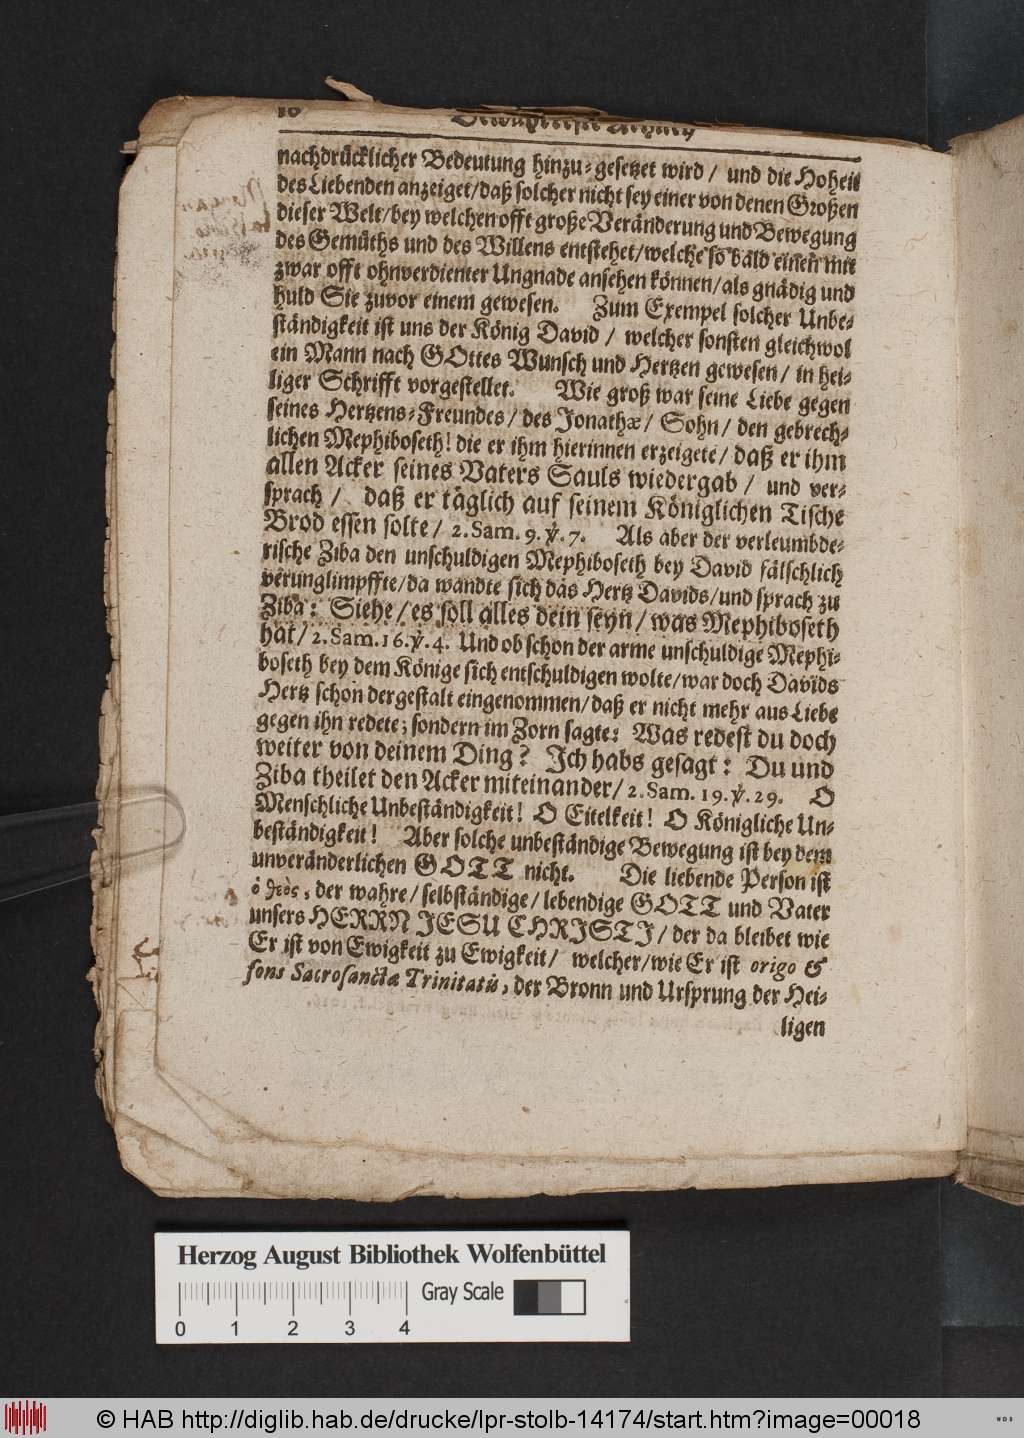 nachdrücklicher Bedeutung hinzu-gesetzet wird / und die Hoheit
des Liebenden anzeiget/daß solcher nicht sey einer von denen Großen
dieser Welt/bey welchen offt große Veränderung und Bewegung
des Gemüths und des Willens entstehet/welche so bald einen mit
zwar offt ohnverdienter Ungnade ansehen können/als gnädig und
huld Sie zuvor einem gewesen. Zum Exempel solcher Unbe-
ständigkeit ist uns der König David / welcher sonsten gleichwol
ein Mann nach GOttes Wunsch und Hertzen gewesen / in hei-
liger Schrifft vorgestellet. Wie groß war seine Liebe gegen
seines Hertzens-Freundes / des Jonathæ / Sohn / den gebrech-
lichen Mephiboseth! die er ihm hierinnen erzeigete / daß er ihm
allen Acker seines Vaters Sauls wiedergab / und ver-
sprach / daß er täglich auf seinem Königlichen Tische
Brod essen solte / 2. Sam. 9. ℣. 7. Als aber der verleumbde-
rische Ziba den unschuldigen Mephiboseth bey David fälschlich
verunglimpffte/da wandte sich das Hertz Davids/und sprach zu
Ziba: Siehe/es soll alles dein seyn/was Mephiboseth
hat/ 2. Sam. 16. ℣. 4. Und ob schon der arme unschuldige Mephi-
boseth bey dem Könige sich entschuldigen wolte/war doch Davids
Hertz schon dergestalt eingenommen/daß er nicht mehr aus Liebe
gegen ihn redete; sondern im Zorn sagte: Was redest du doch
weiter von deinem Ding? Ich habs gesagt: Du und
Ziba theilet den Acker miteinander/ 2. Sam. 19. ℣. 29. O
Menschliche Unbeständigkeit! O Eitelkeit! O Königliche Un-
beständigkeit! Aber solche unbeständige Bewegung ist bey dem
unveränderlichen GOTT nicht. Die liebende Person ist
ὁ θεὸς, der wahre / selbständige / lebendige GOTT und Vater
unsers HERRN JESU CHRISTI / der da bleibet wie
Er ist von Ewigkeit zu Ewigkeit / welcher/wie Er ist origo &
fons Sacrosanctæ Trinitatis, der Bronn und Ursprung der Hei-
ligen
Herzog August Bibliothek Wolfenbüttel
Gray Scale
0 1 2 3 4
© HAB http://diglib.hab.de/drucke/lpr-stolb-14174/start.htm?image=00018